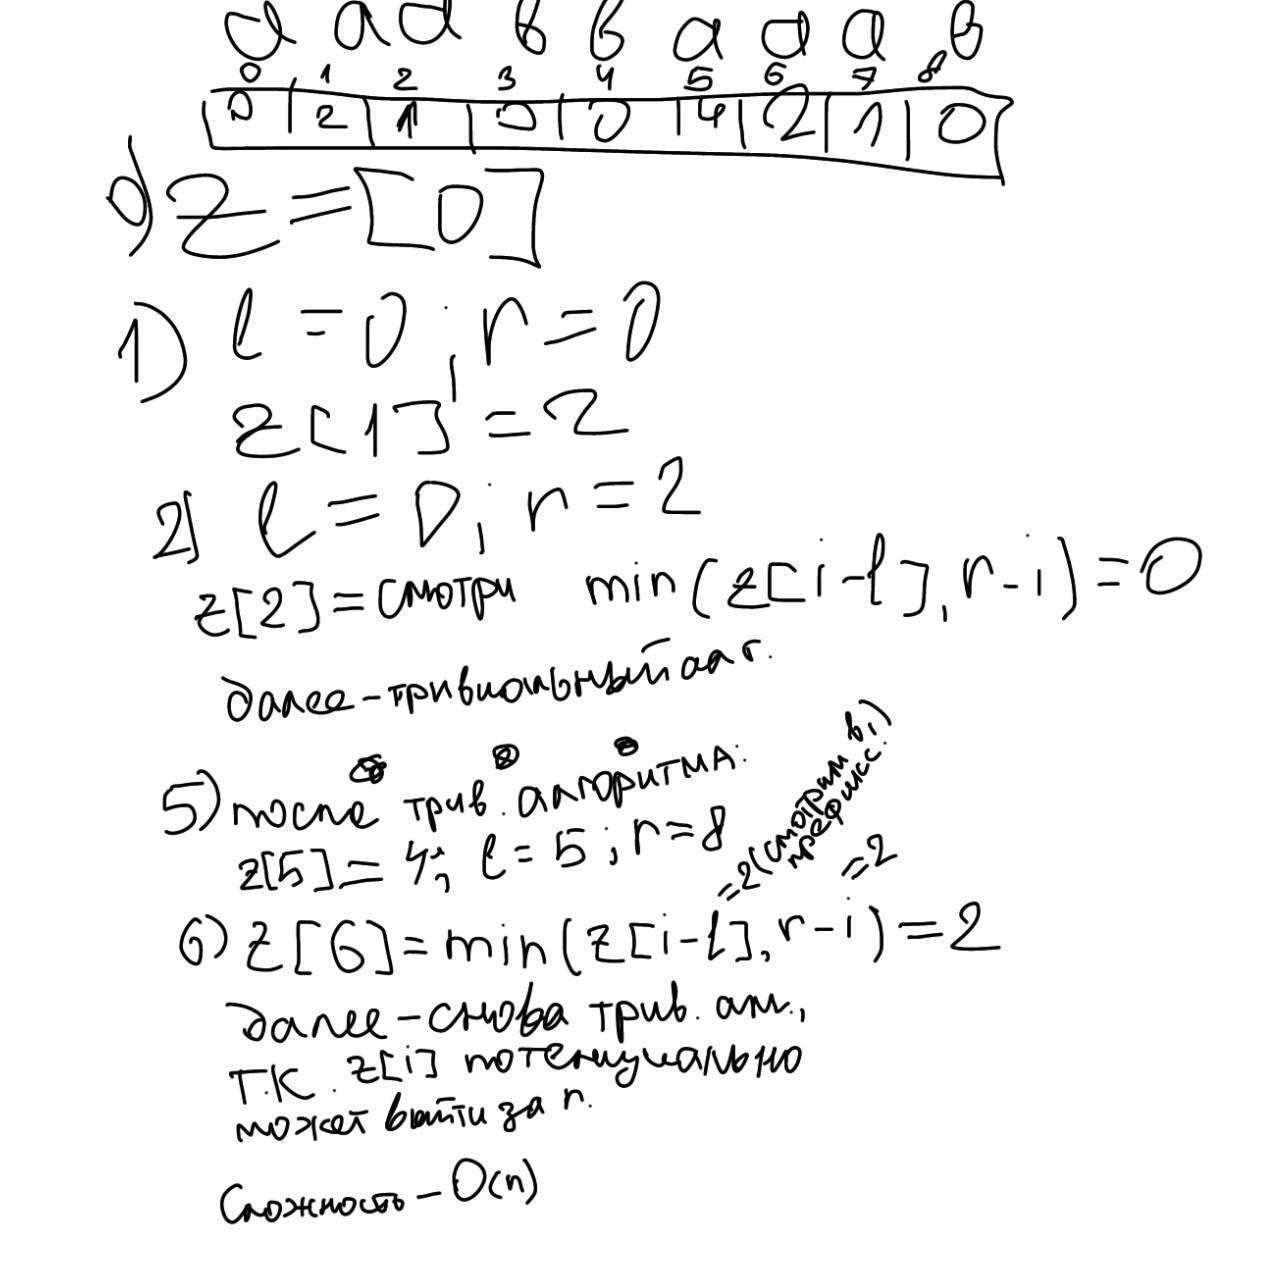 a a a b b a a a b
0 1 2 3 4 5 6 7 8
0 2 1 0 0 4 2 1 0
0) z = [0]
1) l = 0; r = 0
z[1] = 2
2) l = 0; r = 2
z[2] = смотри min(z[i-l], r-i) = 0
далее - тривиальный алг.
5) после трив. алгоритма:
z[5] = 4; l = 5; r = 8
=2 (смотрим в i) префикс.
=2
6) z[6] = min(z[i-l], r-i) = 2
Далее - снова трив. алг.,
т.к. z[i] потенциально
может выйти за r.
Сложность - O(n)